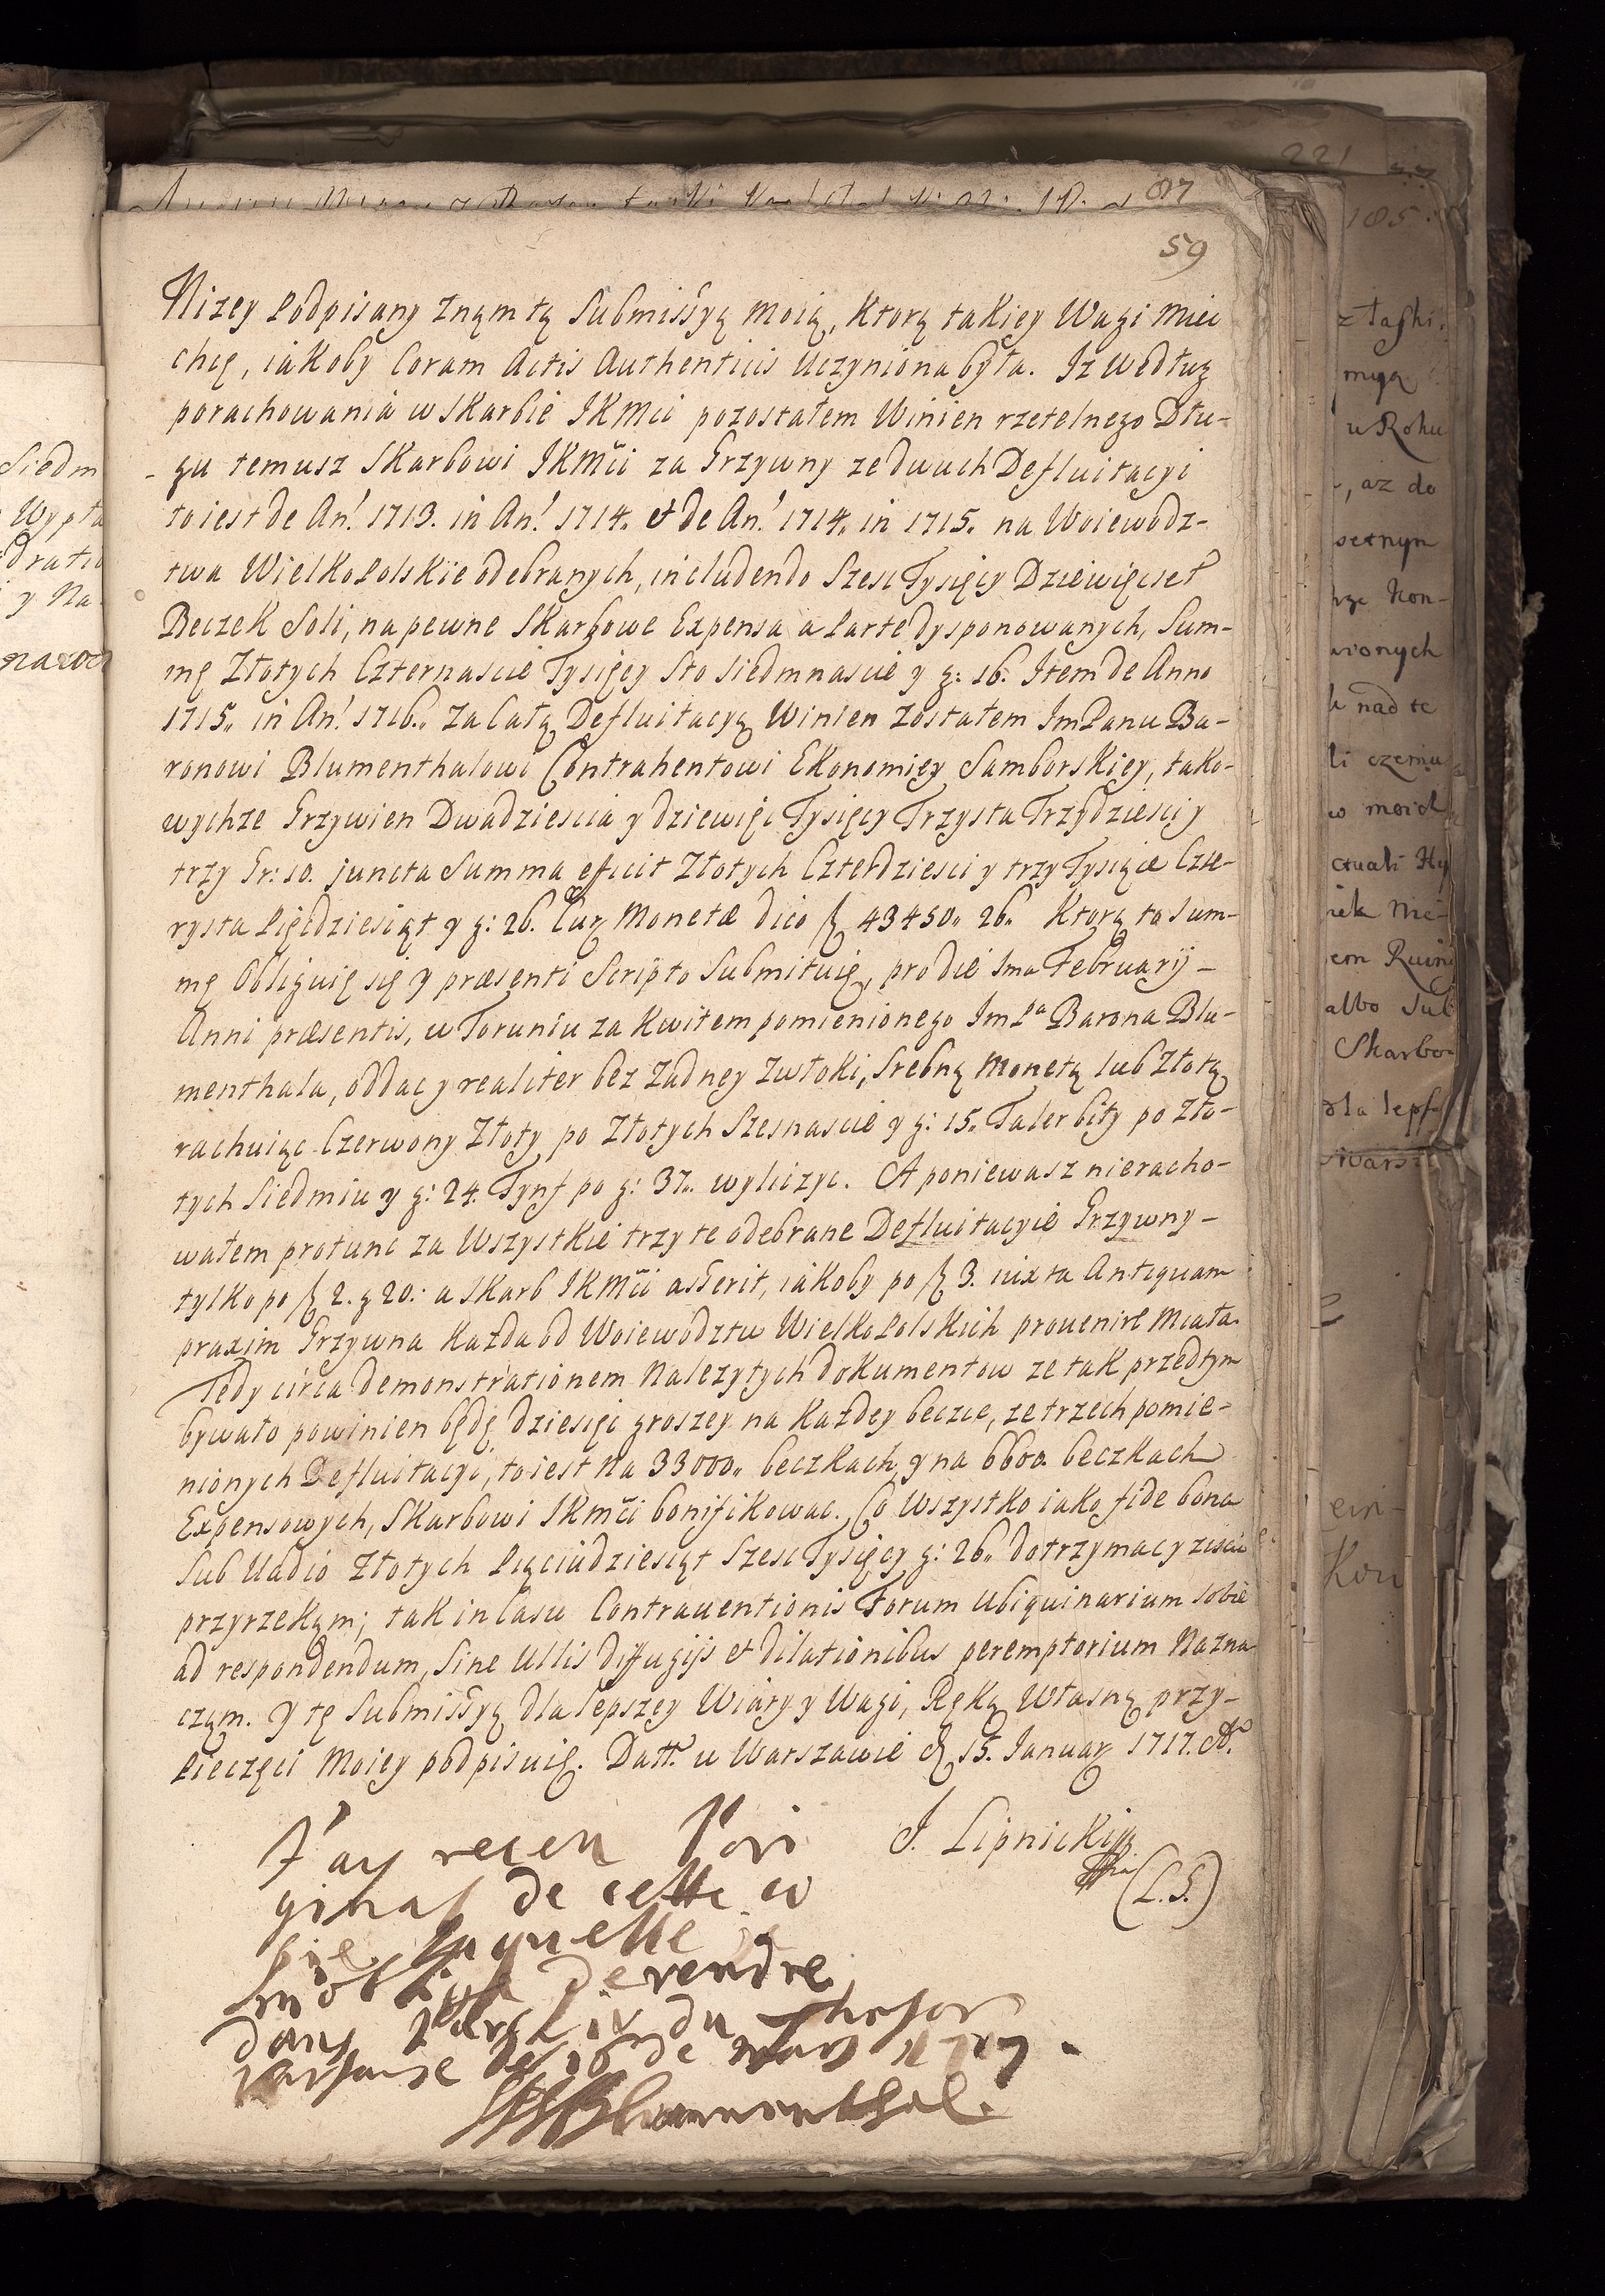 87
59
Nizey Podpisany Znąm tą Submissyą Moią, Ktorą takiey Wagi Miec
chcę, iakoby Coram Actis Authenticis Uczyniona była. Iz Według
porachowania w Skarbie IKMci pozostałem Winien rzetelnego Dłu-
- gu temusz Skarbowi IKMci za Grzywny ze dwuch Defluitacyi
to iest de An! 1713. in An! 1714. et de An! 1714. in 1715. na Woiewodz-
twa WielkoPolskie odebranych, includendo Szesc Tysięcy Dziewięcset
Beczek Soli, na pewne Skarbowe Expensa a Parte dysponowanych, Sum-
mę Złotych Czternascie Tysięcy Sto Siedmnascie y g: 16. Item de Anno
1715. in An! 1716. Za Całą Defluitacyą Winien Zostałem ImPanu Ba-
ronowi Blumenthalowi Contrahentowi Ekonomiey Samborskiey, tako-
wychze Grzywien Dwadziescia y dziewięc Tysięcy Trzysta Trzydziesci y
trzy Gr: 10. juncta Summa efficit Złotych Czterdziesci y trzy Tysiące Czte-
rysta Pięcdziesiąt y g: 26. Cur Monetæ dico fl 43450. 26. Ktorą to Sum-
mę Obliguię się y præsenti Scripto Submituię, pro die 1ma Februarij -
Anni præsentis, w Toruniu za Kwitem pomienionego ImPa Barona Blu-
menthala, oddac y realiter bez Zadney Zwłoki, Srebną Monetą lub Złotą
rachuiąc Czerwony Złoty po Złotych Szesnascie y g: 15. Taler bity po Zło-
tych Siedmiu y g: 24. Tynf po g: 37. wyliczyc. A poniewasz nieracho-
wałem protunc za Wszystkie trzy te odebrane Defluitacyie Grzywny -
tylko po fl 2. g 20.: a Skarb IKMci asserit, iakoby po fl 3. iuxta Antiquam
praxim Grzywna Kazda od Woiewodztw WielkoPolskich prouenire Miała.
Tedy circa demonstrationem Nalezytych dokumentow ze tak przedtym
bywało powinien będę dziesięc groszey na Kazdey beczce, ze trzech pomie-
nionych Defluitacyi, to iest Na 33000. beczkach y na 6600. beczkach
Expensowych, Skarbowi IKMci bonifikowac. Co Wszystko iako fide bona
Sub Uadio Złotych Pięciadziesiąt Szesc Tysięcy g: 26. dotrzymac y ziscic
przyrzekąm; tak in Casu Contrauentionis Forum Ubiquinarium sobie
ad respondendum, Sine Ullis diffugijs et dilationibus peremptorium Nazna
cząm. Y tę Submissyą dla lepszey Wiary y Wagi, Ręką Własną przy-
Pieczęci Moiey podpisuię. Datt. w Warszawie d 15. Januar 1717. Ao
J. Lipnicki
(L.S.)
J'ay receu l'ori
ginal de cette co
pie laquelle je
m'oblige de rendre
dans l'archiv du Thesor
varsauie le 16 de mars 1717.
Blumenthal.